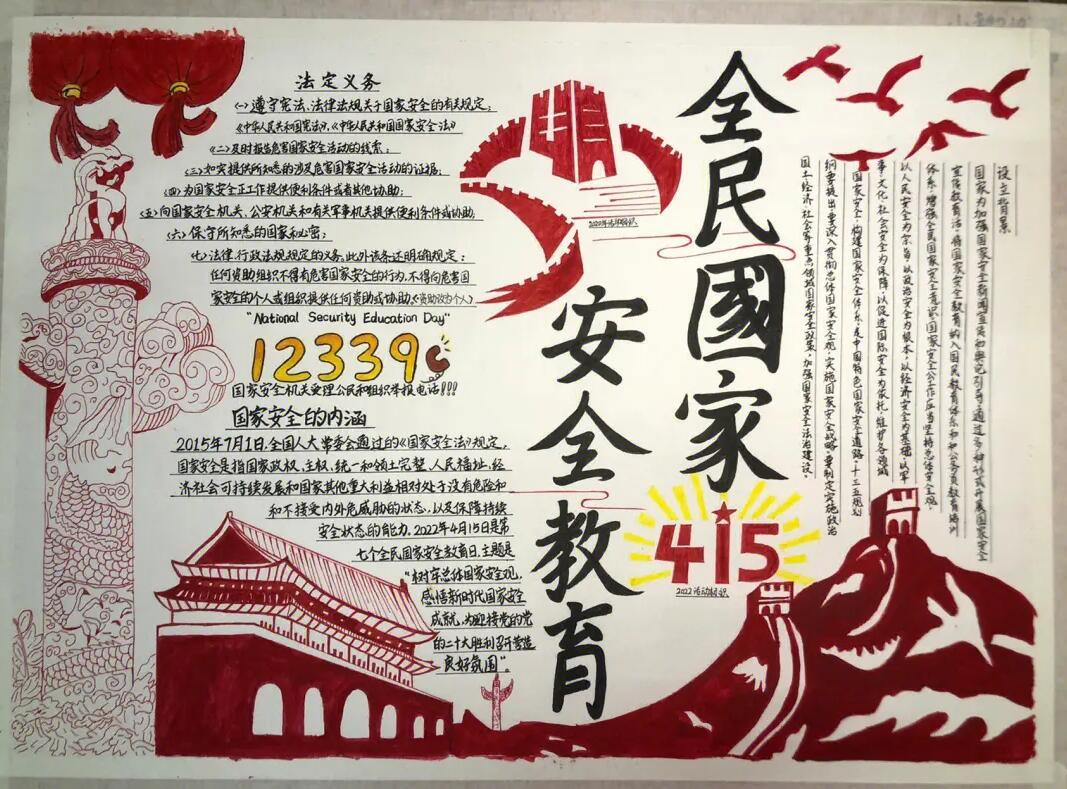 全民國家
安全教育
法定义务
(一)遵守宪法、法律法规关于国家安全的有关规定;
《中华人民共和国宪法》,《中华人民共和国国家安全法》
(二)及时报告危害国家安全活动的线索;
(三)如实提供所知悉的涉及危害国家安全活动的证据;
(四)为国家安全工作提供便利条件或者其他协助;
(五)向国家安全机关、公安机关和有关军事机关提供便利条件或协助,
(六)保守所知悉的国家秘密;
(七)法律、行政法规规定的义务,此外该条还明确规定:
任何资助组织不得有危害国家安全的行为,不得向危害国
家安全的个人或组织提供任何资助或协助,
"National Security Education Day"
12339
国家安全机关受理公民和组织举报电话!!!
国家安全的内涵
2015年7月1日,全国人大常委会通过的《国家安全法》规定,
国家安全是指国家政权、主权、统一和领土完整、人民福祉、经
济社会可持续发展和国家其他重大利益相对处于没有危险和
和不接受内外危威胁的状态,以及保障持续
安全状态的能力。2022年4月15日是第
七个全民国家安全教育日,主题是
"树牢总体国家安全观,
感悟新时代国家安全
成就,为迎接党的党
的二十大胜利召开营造
良好氛围"。
415
2022活动标识
设立背景
体系,增强全民国家安全意识,国家安全工作应当坚持总体安全观,
以人民安全为宗旨,以政治安全为根本,以经济安全为基础,以军
事、文化、社会安全为保障,以促进国际安全为依托,维护各领域
国家安全,构建国家安全体系,走中国特色国家安全道路,十三五规划
纲要提出,要深入贯彻总体国家安全观,实施国家安全战略,要制定实施政治
国土、经济、社会等重点领域国家安全政策,加强国家安全法治建设。